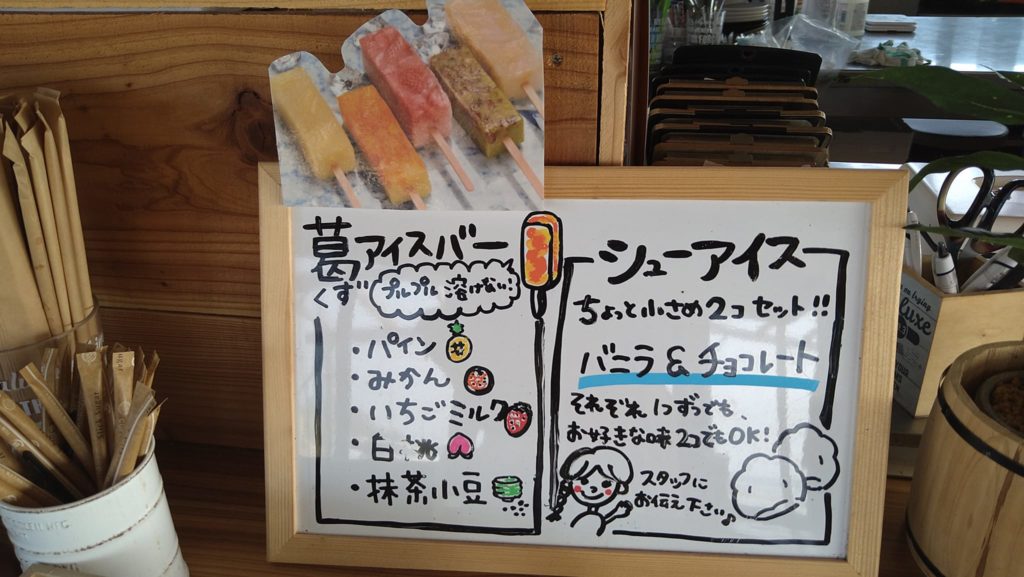 葛アイスバー
くず
プルプル 溶けない!
・パイン
・みかん
・いちごミルク
・白
・抹茶小豆
シューアイス
ちょっと小さめ2コセット!!
バニラ & チョコレート
それぞれ1つずつでも、
お好きな味2コでもOK!
スタッフに
お伝え下さい♪
luxe